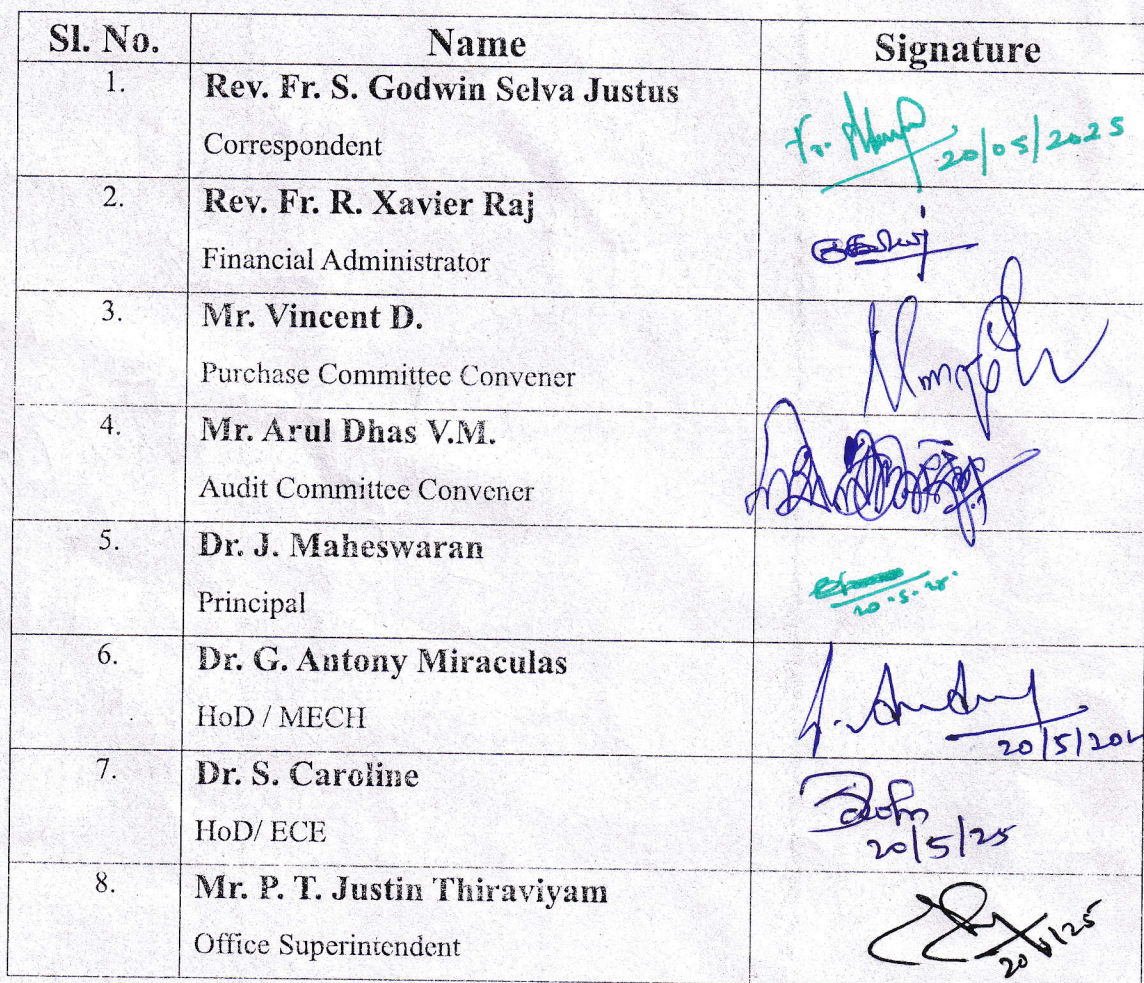 Sl. No. Name Signature
1. Rev. Fr. S. Godwin Selva Justus
Correspondent
Fr. 20/05/2025
2. Rev. Fr. R. Xavier Raj
Financial Administrator
3. Mr. Vincent D.
Purchase Committee Convener
4. Mr. Arul Dhas V.M.
Audit Committee Convener
5. Dr. J. Maheswaran
Principal
20.5.25.
6. Dr. G. Antony Miraculas
HoD / MECH
20/5/202
7. Dr. S. Caroline
HoD/ ECE
20/5/25
8. Mr. P. T. Justin Thiraviyam
Office Superintendent